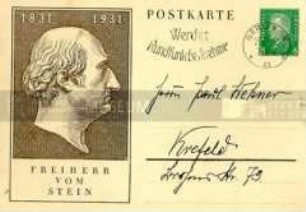 1831 1931
FREIHERR
VOM
STEIN
POSTKARTE
Werdet
Rundfunkteilnehmer
Herrn Paul
Krefeld
Str. 73